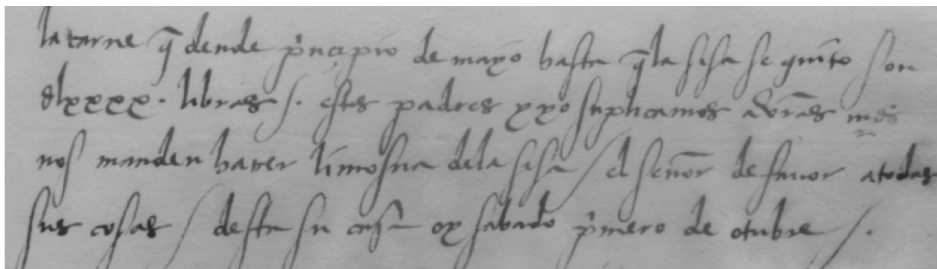 la carne q̃ dende p̃ncipio de mayo hasta q̃ la sisa se quito son
dlxxxx. libras /. estos padres y yo suplicamos a vr̃as mds
nos manden hacer limosna de la sisa / el señor de favor a todas
sus cosas / desta su casa oy sabado p̃mero de otubre /.